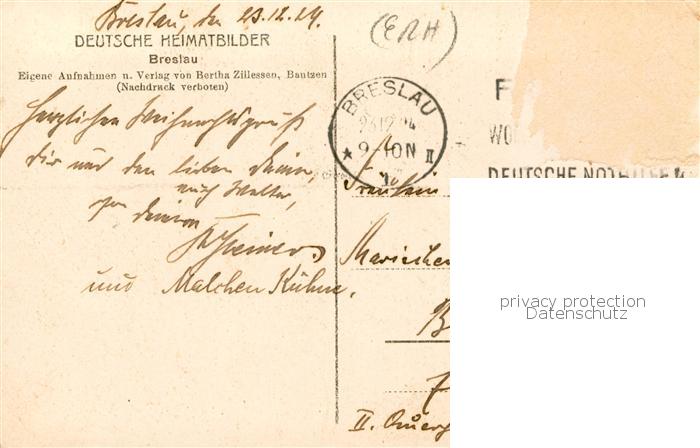 Breslau, den 23.12.24.
DEUTSCHE HEIMATBILDER
Breslau
Eigene Aufnahmen u. Verlag von Bertha Zillessen, Bautzen
(Nachdruck verboten)
(ERH)
Herzlichen Weihnachtsgruß
Dir und den lieben Deinen,
auch Walter,
von Deinem
und Malchen Kühne.
BRESLAU
23.12.24
9-10N II
F
WO
DEUTSCHE NOTHILFE
Fräulein
B
II. Querg
privacy protection
Datenschutz